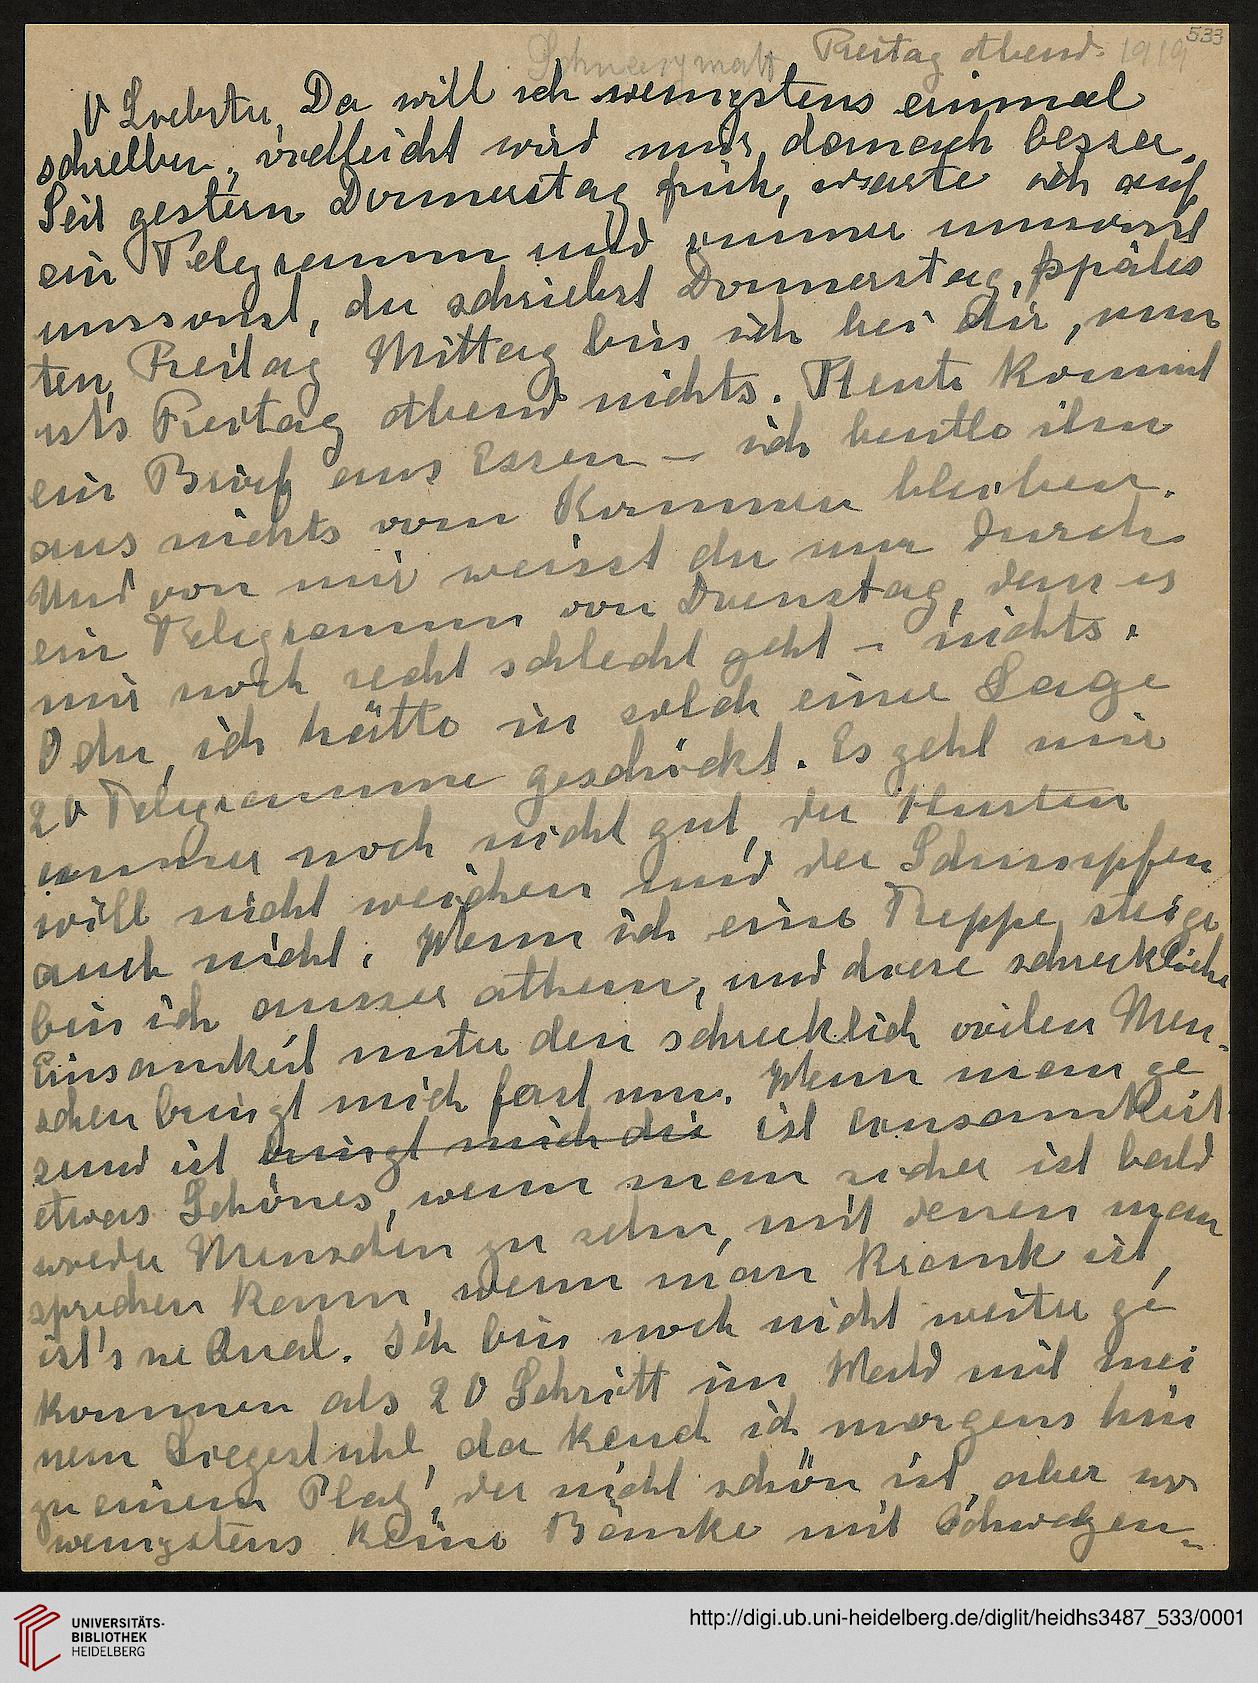 533
Freitag Abend. 1919
O Liebster, Da will ich wenigstens einmal
schreiben, vielleicht wird mir darnach besser.
Seit gestern Donnerstag früh, warte ich auf
ein Telegramm und immer umsonst
umsonst, du schriebst Donnerstag, späles
ten, Freitag Mittag bin ich bei dir, nun
ist's Freitag Abend nichts. Heute kommt
ein Brief aus Essen – ich
aus nichts vom Kommen bleiben.
Und von mir weisst du nur durch
ein Telegramm von Dienstag, dass es
mir noch recht schlecht geht – nichts.
O du, ich hätte in solch einer Lage
20 Telegramme geschickt. Es geht mir
immer noch nicht gut, der Husten
will nicht weichen und der Schnupfen
auch nicht. Wenn ich eine Treppe steige
bin ich ausser athem, und diese schreckliche
Einsamkeit unter den schrecklich vielen Men-
schen bringt mich fast um. Wenn man ge
sund ist bringt mich die ist einsamkeit
etwas Schönes, wenn man sicher ist bald
wieder Menschen zu sehn, mit denen man
sprechen kann, wenn man krank ist,
ist's ne Qual. Ich bin noch nicht weiter ge
kommen als 20 Schritt im Wald mit mei
nem Liegestuhl, da ich morgens hin
zu einem Platz, der nicht schön ist, aber wo
wenigstens keine Bänke mit Schwatzen-
UNIVERSITÄTS-
BIBLIOTHEK
HEIDELBERG
http://digi.ub.uni-heidelberg.de/diglit/heidhs3487_533/0001